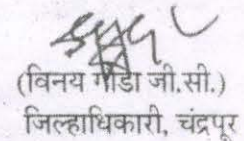 (विनय गौडा जी.सी.)
जिल्हाधिकारी, चंद्रपूर